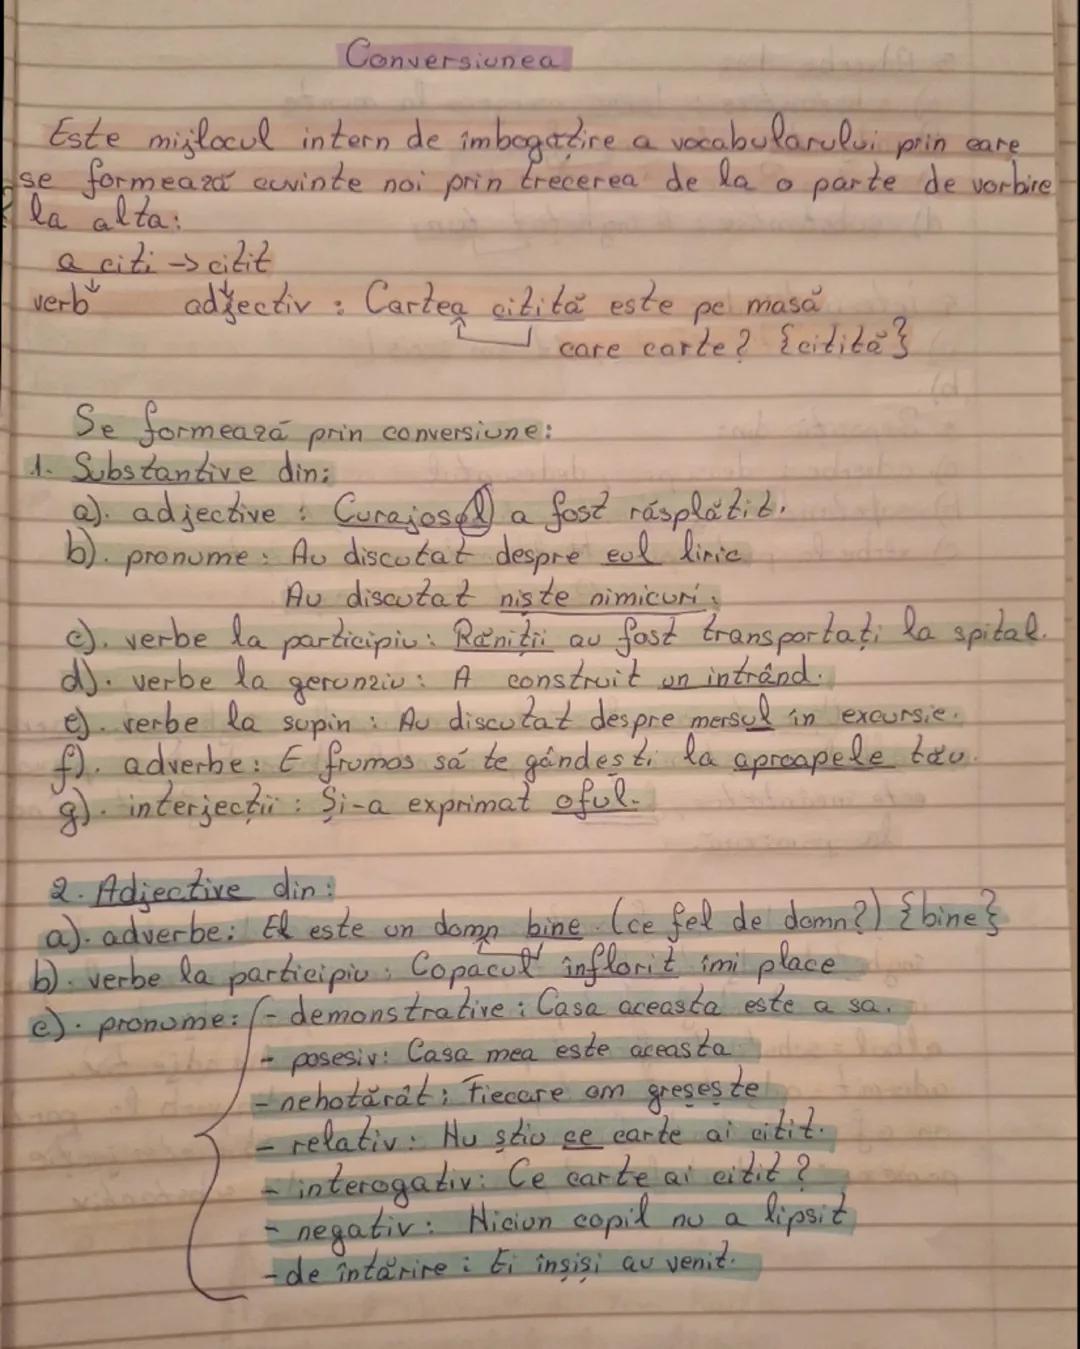 Conversiunea
Este mijlocul intern de îmbogățire a vocabularului prin care
se formează cuvinte noi prin trecerea de la o parte de vorbire
la alta:
a citi → citit
verb adjectiv : Cartea citită este pe masă
care carte? {citită}
Se formează prin conversiune:
1. Substantive din:
a). adjective : Curajosul a fost răsplătit.
b). pronume : Au discutat despre eul liric
Au discutat niște nimicuri.
c). verbe la participiu : Răniții au fost transportați la spital.
d). verbe la gerunziu : A construit un intrând.
e). verbe la supin : Au discutat despre mersul în excursie.
f). adverbe : E frumos să te gândești la aproapele tău.
g). interjecții : Și-a exprimat oful.
2. Adjective din :
a). adverbe : El este un domn bine (ce fel de domn?) {bine}
b). verbe la participiu : Copacul înflorit îmi place
c). pronume: - demonstrative : Casa aceasta este a sa.
- posesiv: Casa mea este aceasta
- nehotărât : Fiecare om greșește
- relativ : Nu știu ce carte ai citit.
- interogativ : Ce carte ai citit ?
- negativ : Niciun copil nu a lipsit
- de întărire : Ei înșiși au venit.